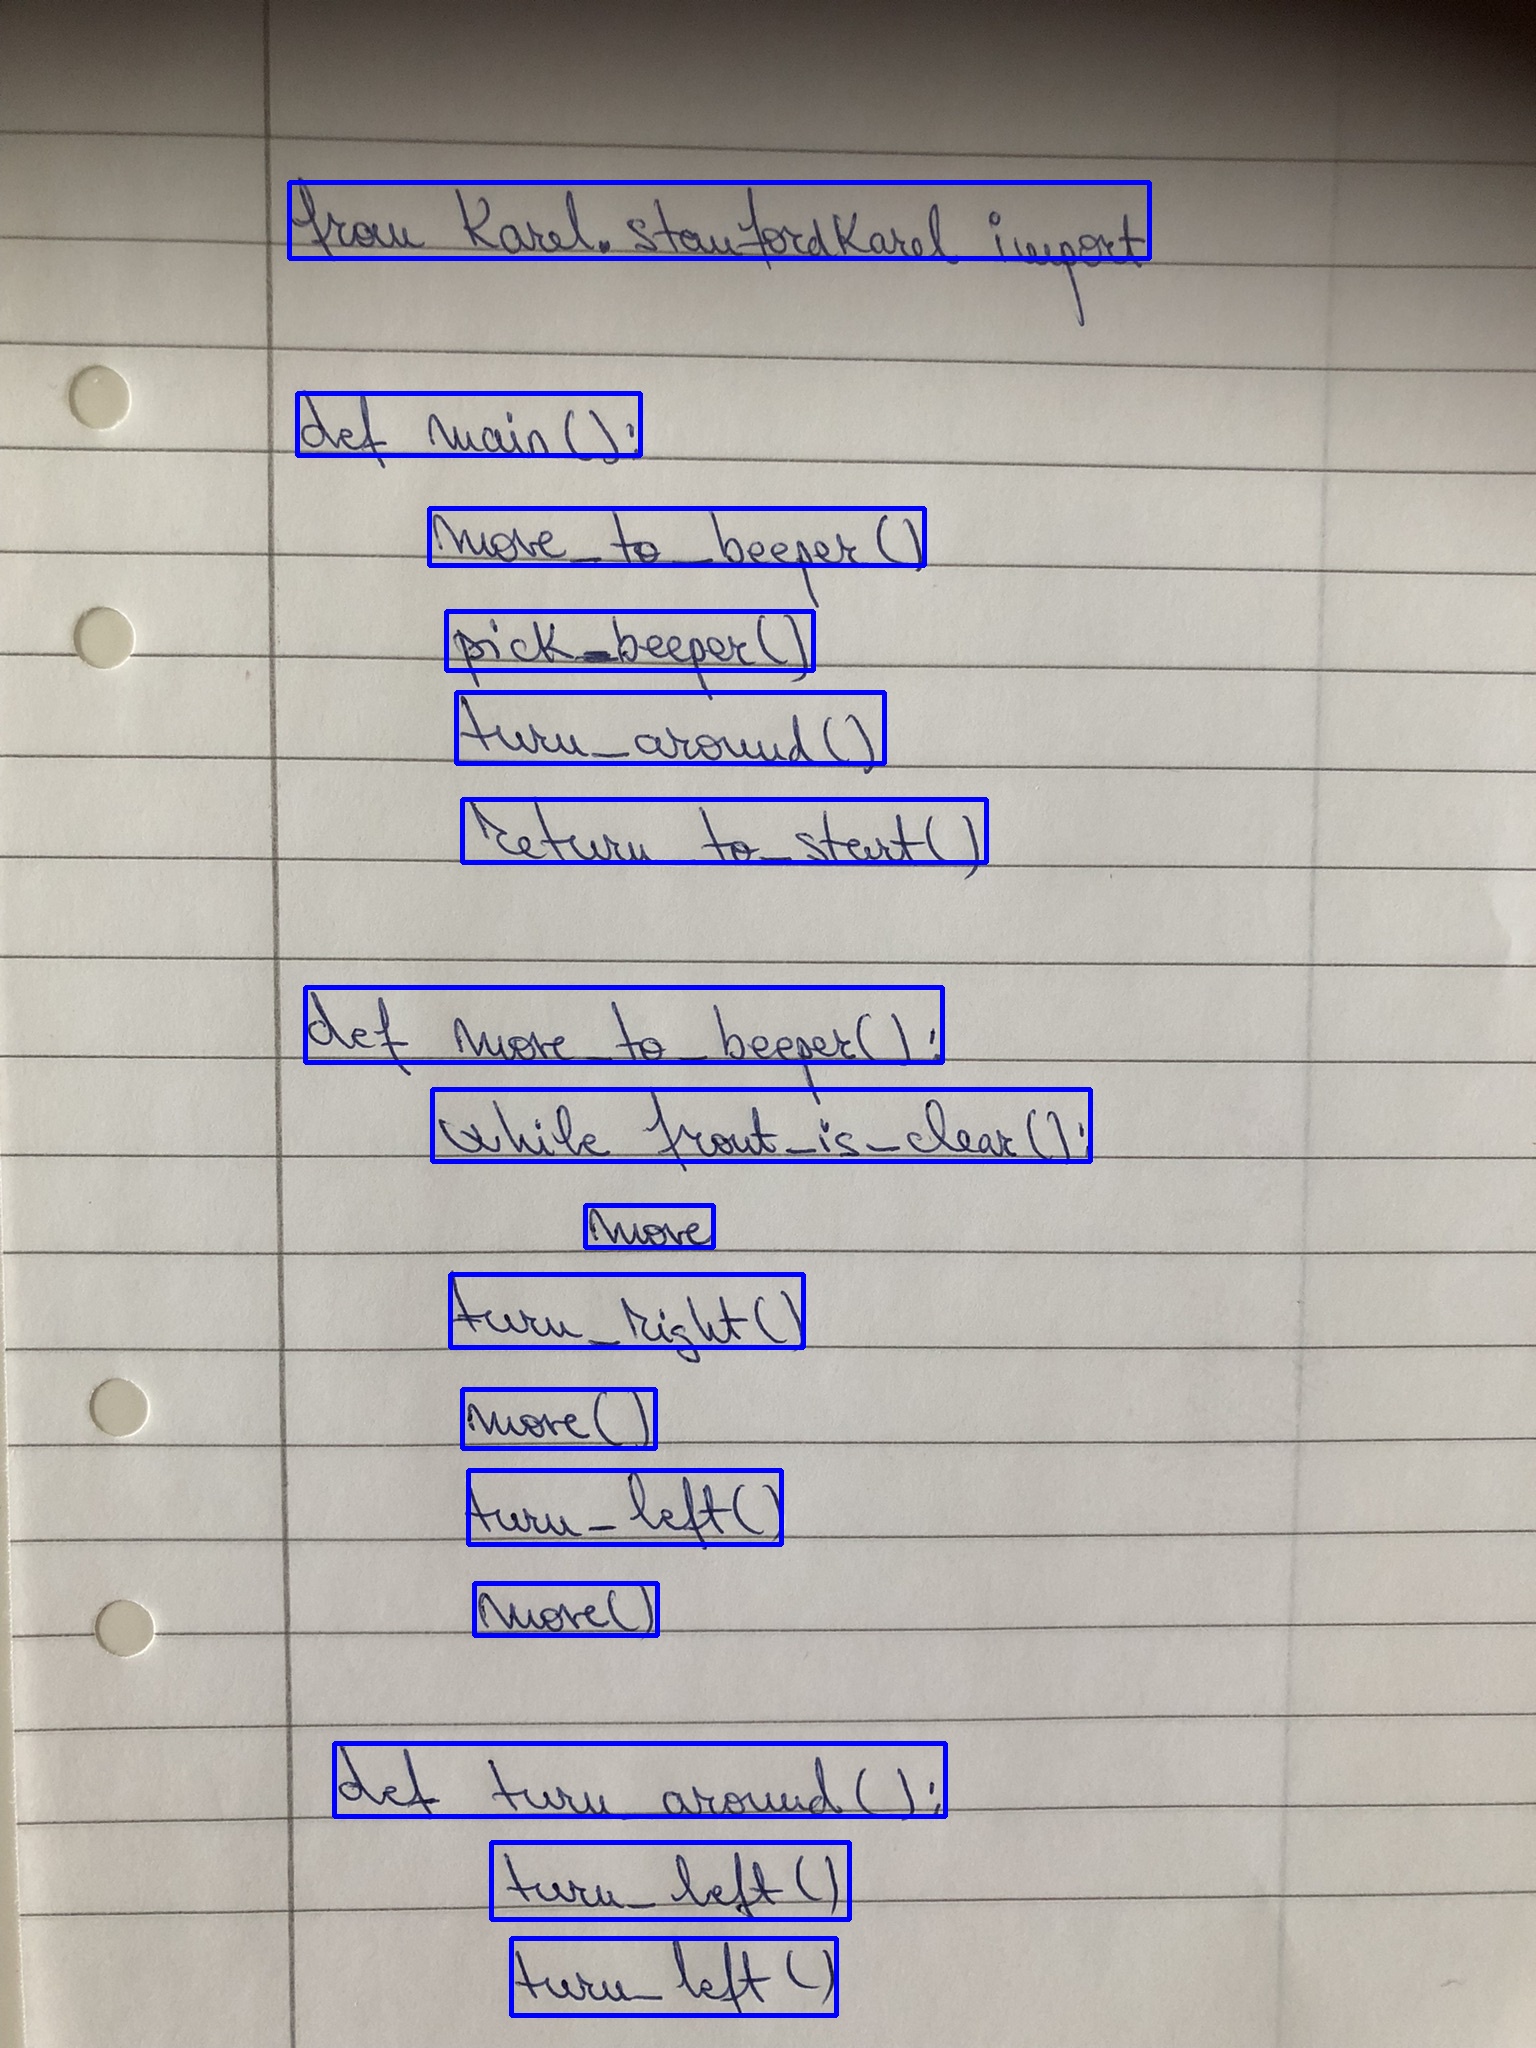 from Karel.stanfordKarel import
def main():
    move_to_beeper()
    pick_beeper()
    turn_around()
    return to_start()
def move_to_beeper():
    while front_is_clear():
        move
    turn_right()
    move()
    turn_left()
    move()
def turn_around():
    turn_left()
    turn_left()